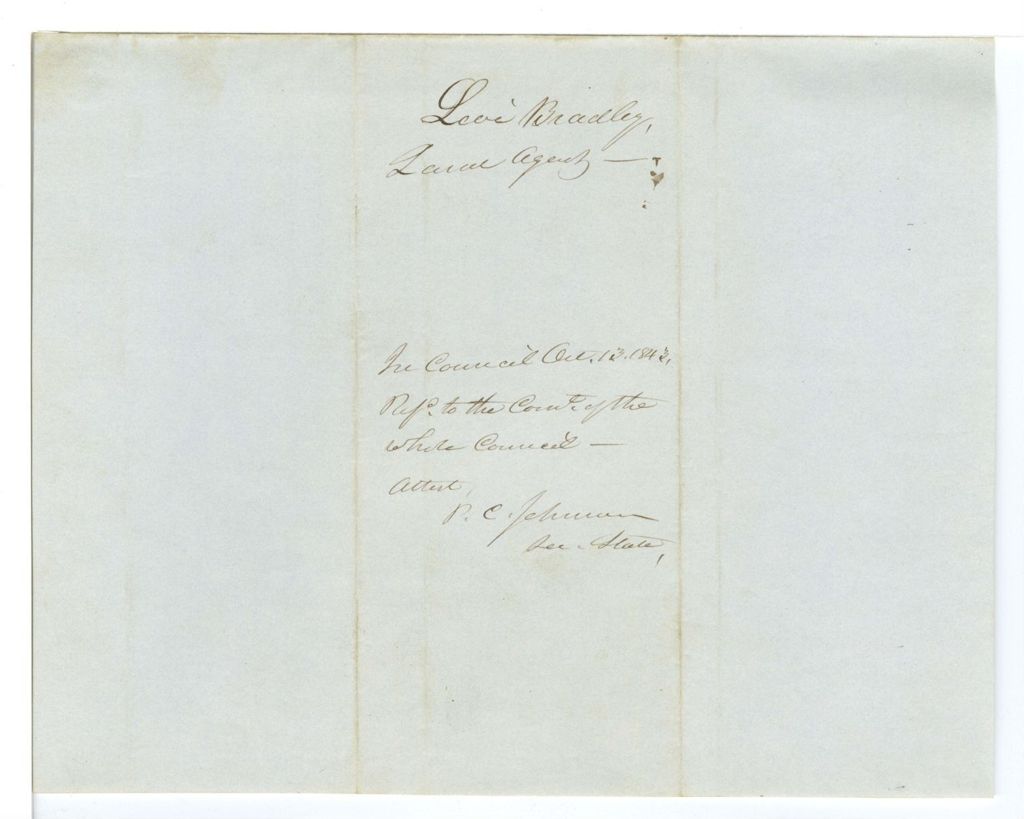 Levi Bradley,
Land Agent —
In Council Oct. 13. 1843,
Refd. to the Comte. of the
whole Council —
Attest,
P. C. Johnson
Sec. State,